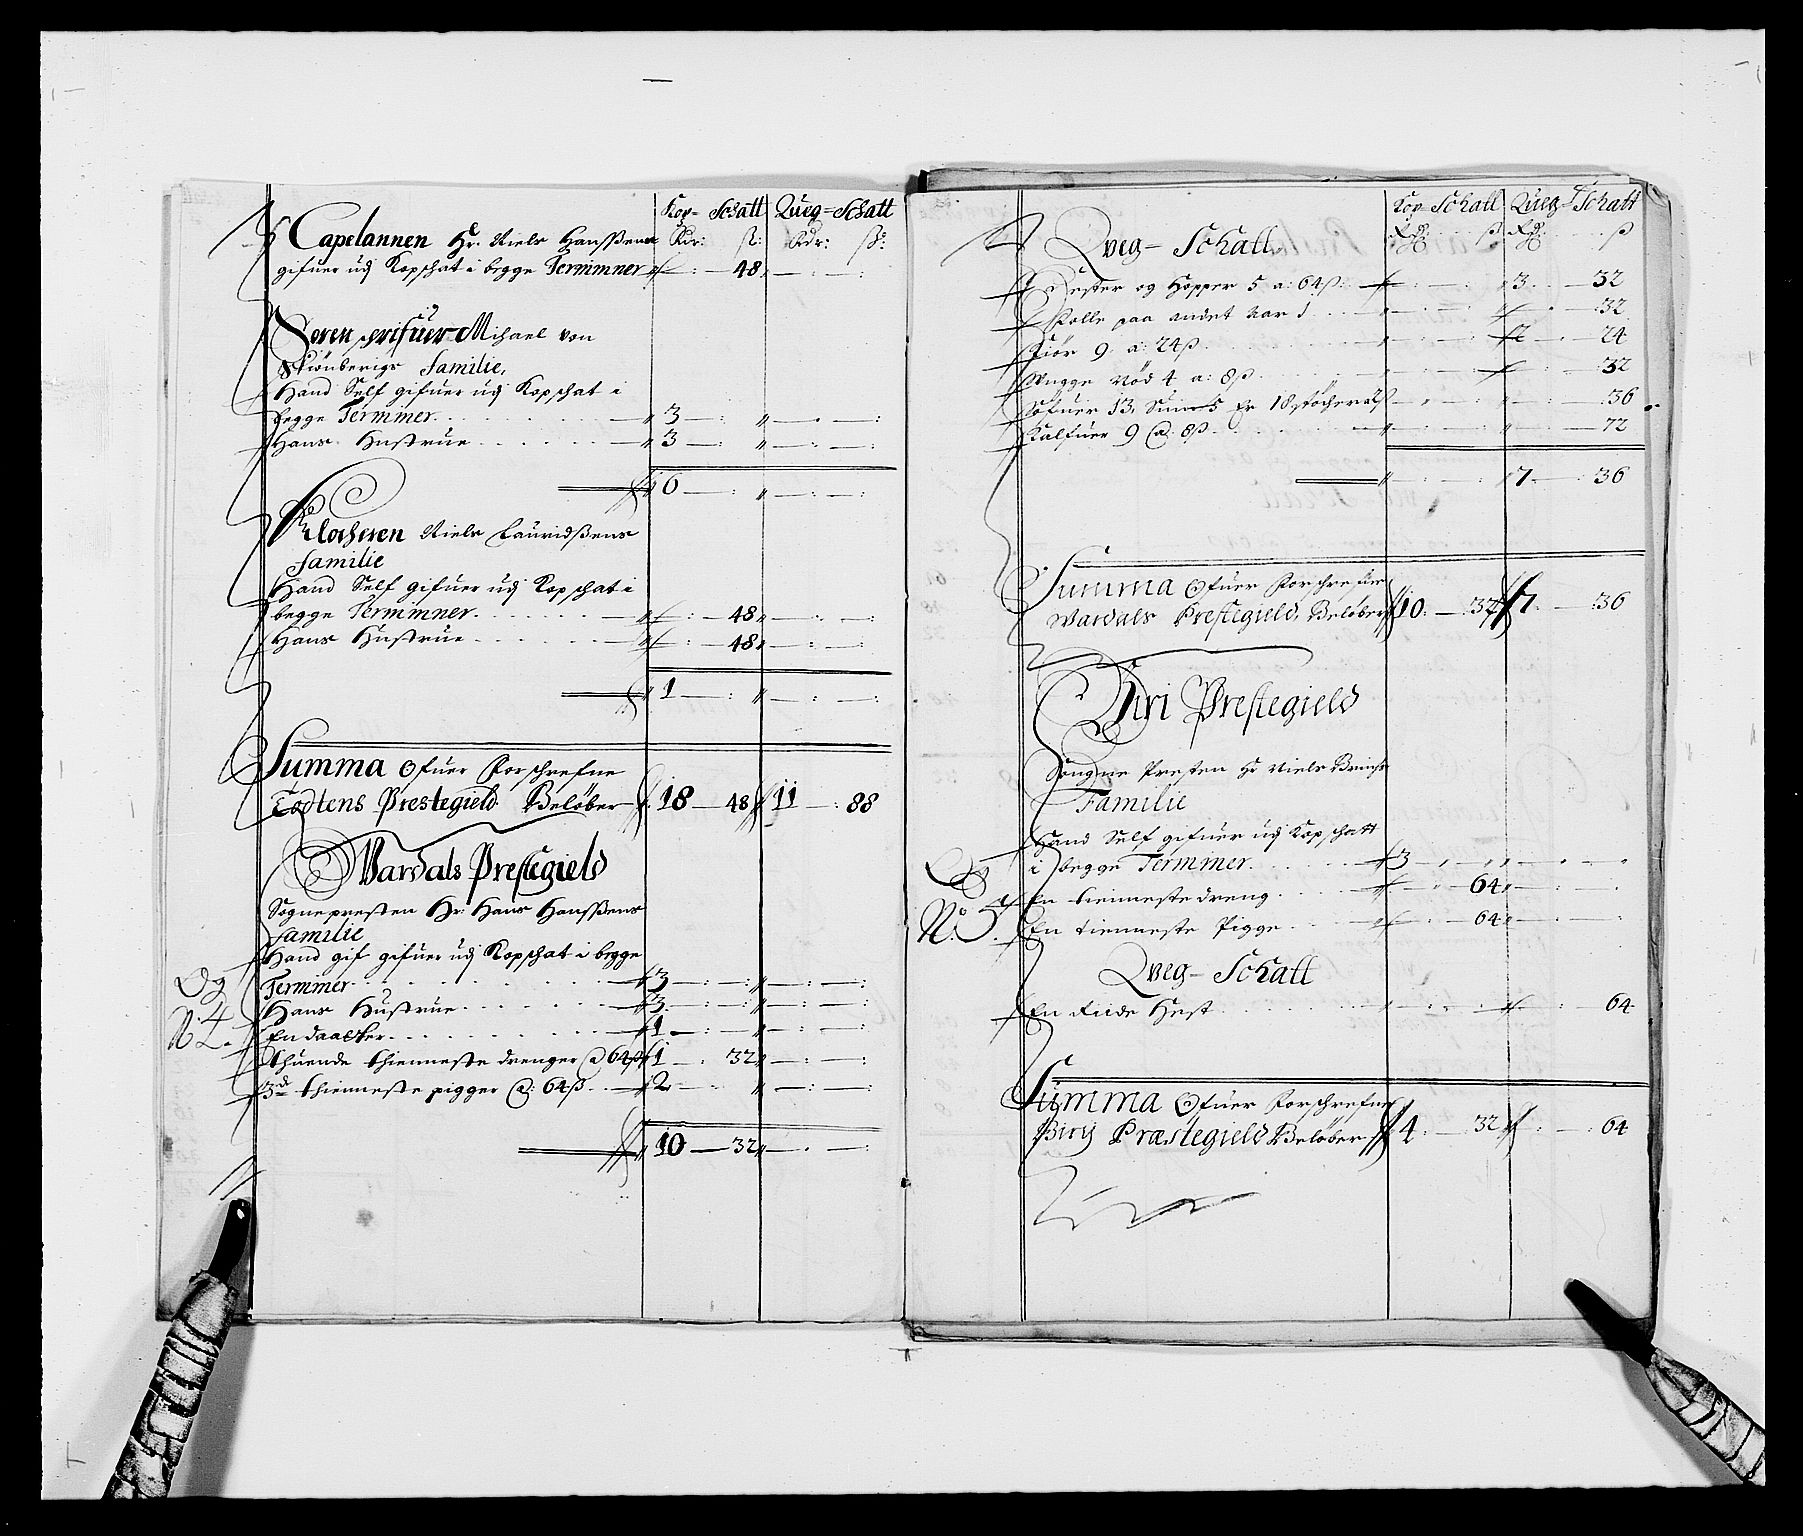 Kop- Schatt Queg-Schatt
Rdr: ß: Rdr: ß:
Capelannen Hr. Niels Hanßens
gifuer udj Kopschat i begge Terminner — 48
Soren schrifuer Mihael von
familie,
Hand Self gifuer udj Kopschat i
begge Terminer 3
Hans Hustrue 3
6
Klocheren Niels Lauridßens
familie
Hand Self gifuer udj Kopschat i
begge Terminner — 48
Hans Hustrue — 48
1
Summa Ofuer Forschrefne
Todtens Prestegield Beløber 18 — 48 11 — 88
Wardals Prestegield
Sognepresten Hr: Hans Hanßens
familie
Hand gif gifuer udj Kopschat i begge
Og
N. 4.
Terminer 3
Hans Hustrue 3
En daatter 1
thuende thienneste drenger a 64ß 1 — 32
3de thienneste pigger a: 64ß 2
10 — 32
Kop-Schatt Queg-Schatt
Rdr ß Rdr ß
Qveg-Schatt
Hester og Hopper 5 a: 64ß: 3 — 32
Folle paa andet aar 1 — 32
Kiør 9 a: 24ß 2 — 24
Vngge Nød 4 a: 8ß — 32
Søfuer 13, Suin 5 Er 18 støcher a 2ß — 36
Kalfuer 9 a: 8ß — 72
7 — 36
Summa Ofuer Forschrefne
Wardals Prestegield, Beløber 10 — 32 7 — 36
Biri Prestegield
Songne Presten Hr Niels
Familie
Hand Self gifuer udj Kopschatt
i begge Terminer 3
Og
No 5.
En tienneste dreng — 64
En tienneste Pigge — 64
Qveg-Schatt
En Riide Hest — 64
Summa Ofuer Forschrefne
Birij Præstegield Beløber 4 — 32 — 64